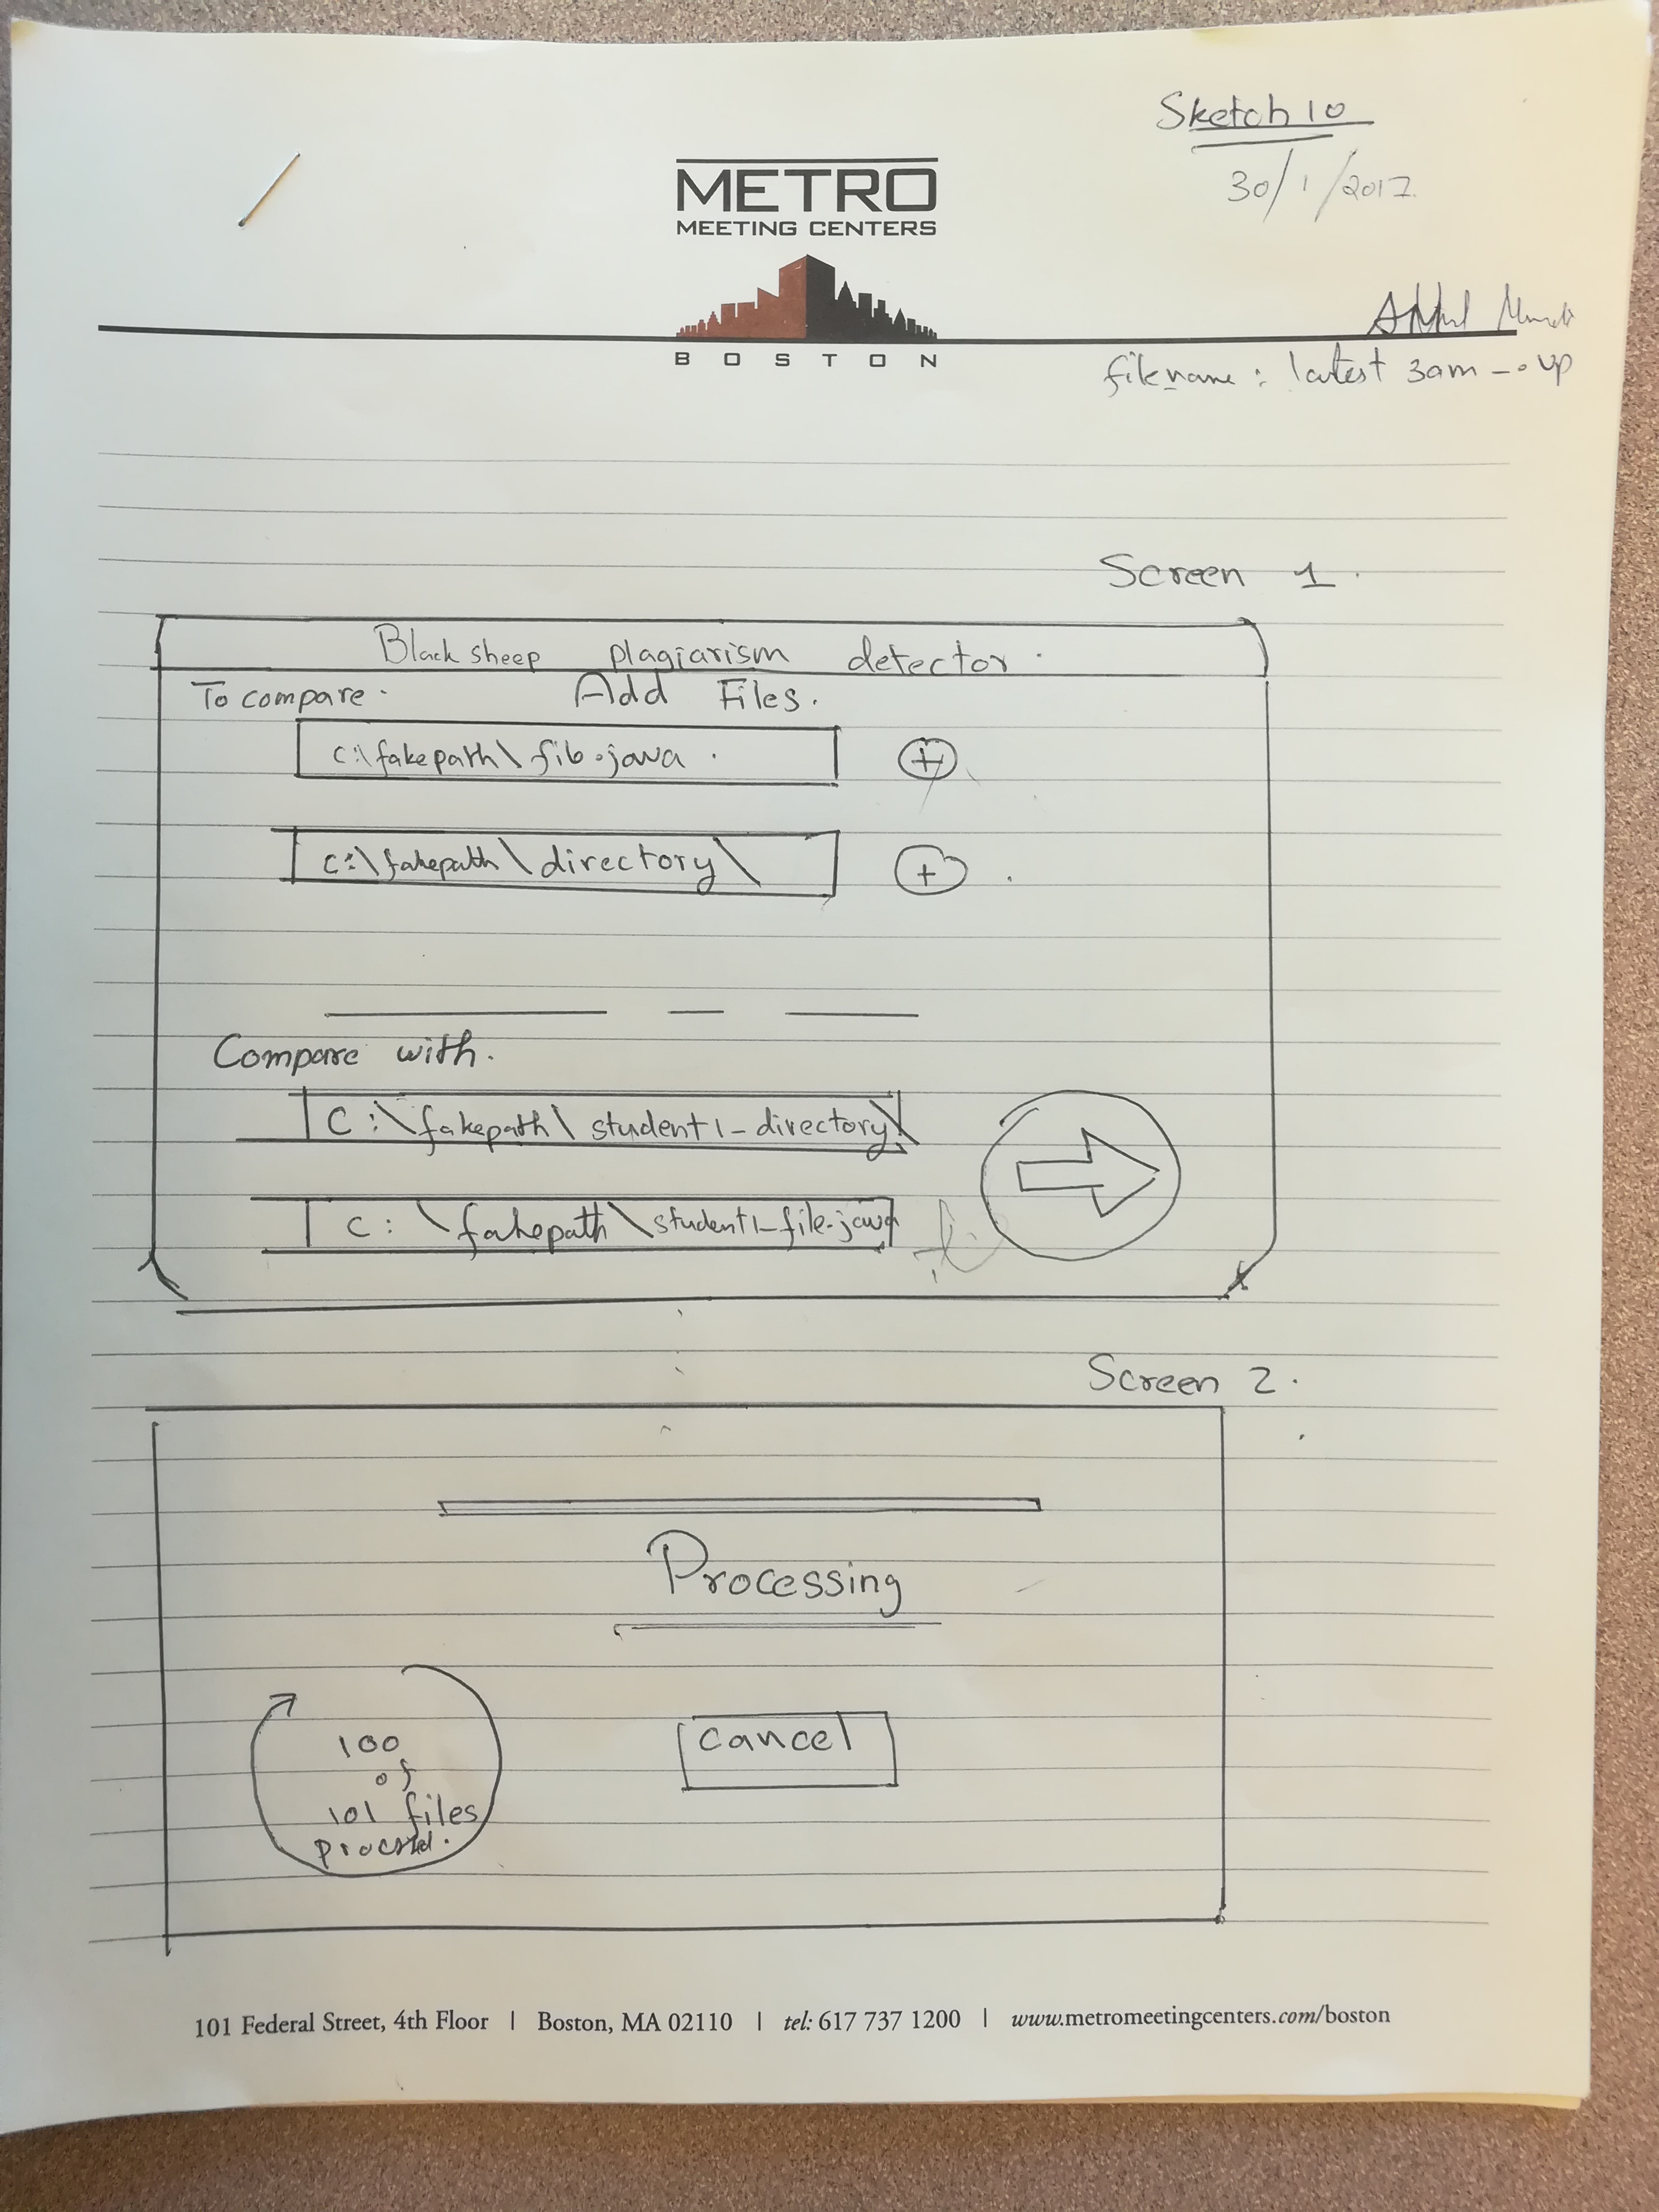 Sketch 10
30/1/2017
METRO
MEETING CENTERS
BOSTON
filename: latest 3am-.up
Screen 1.
Black sheep plagiarism detector.
To compare. Add Files.
c:\fakepath\fib.java
+
c:\fakepath\directory\
+
Compare with.
C:\fakepath\student1_directory\
C:\fakepath\student1_file.java
Screen 2.
Processing
100
of
101 files
Cancel
101 Federal Street, 4th Floor | Boston, MA 02110 | tel: 617 737 1200 | www.metromeetingcenters.com/boston